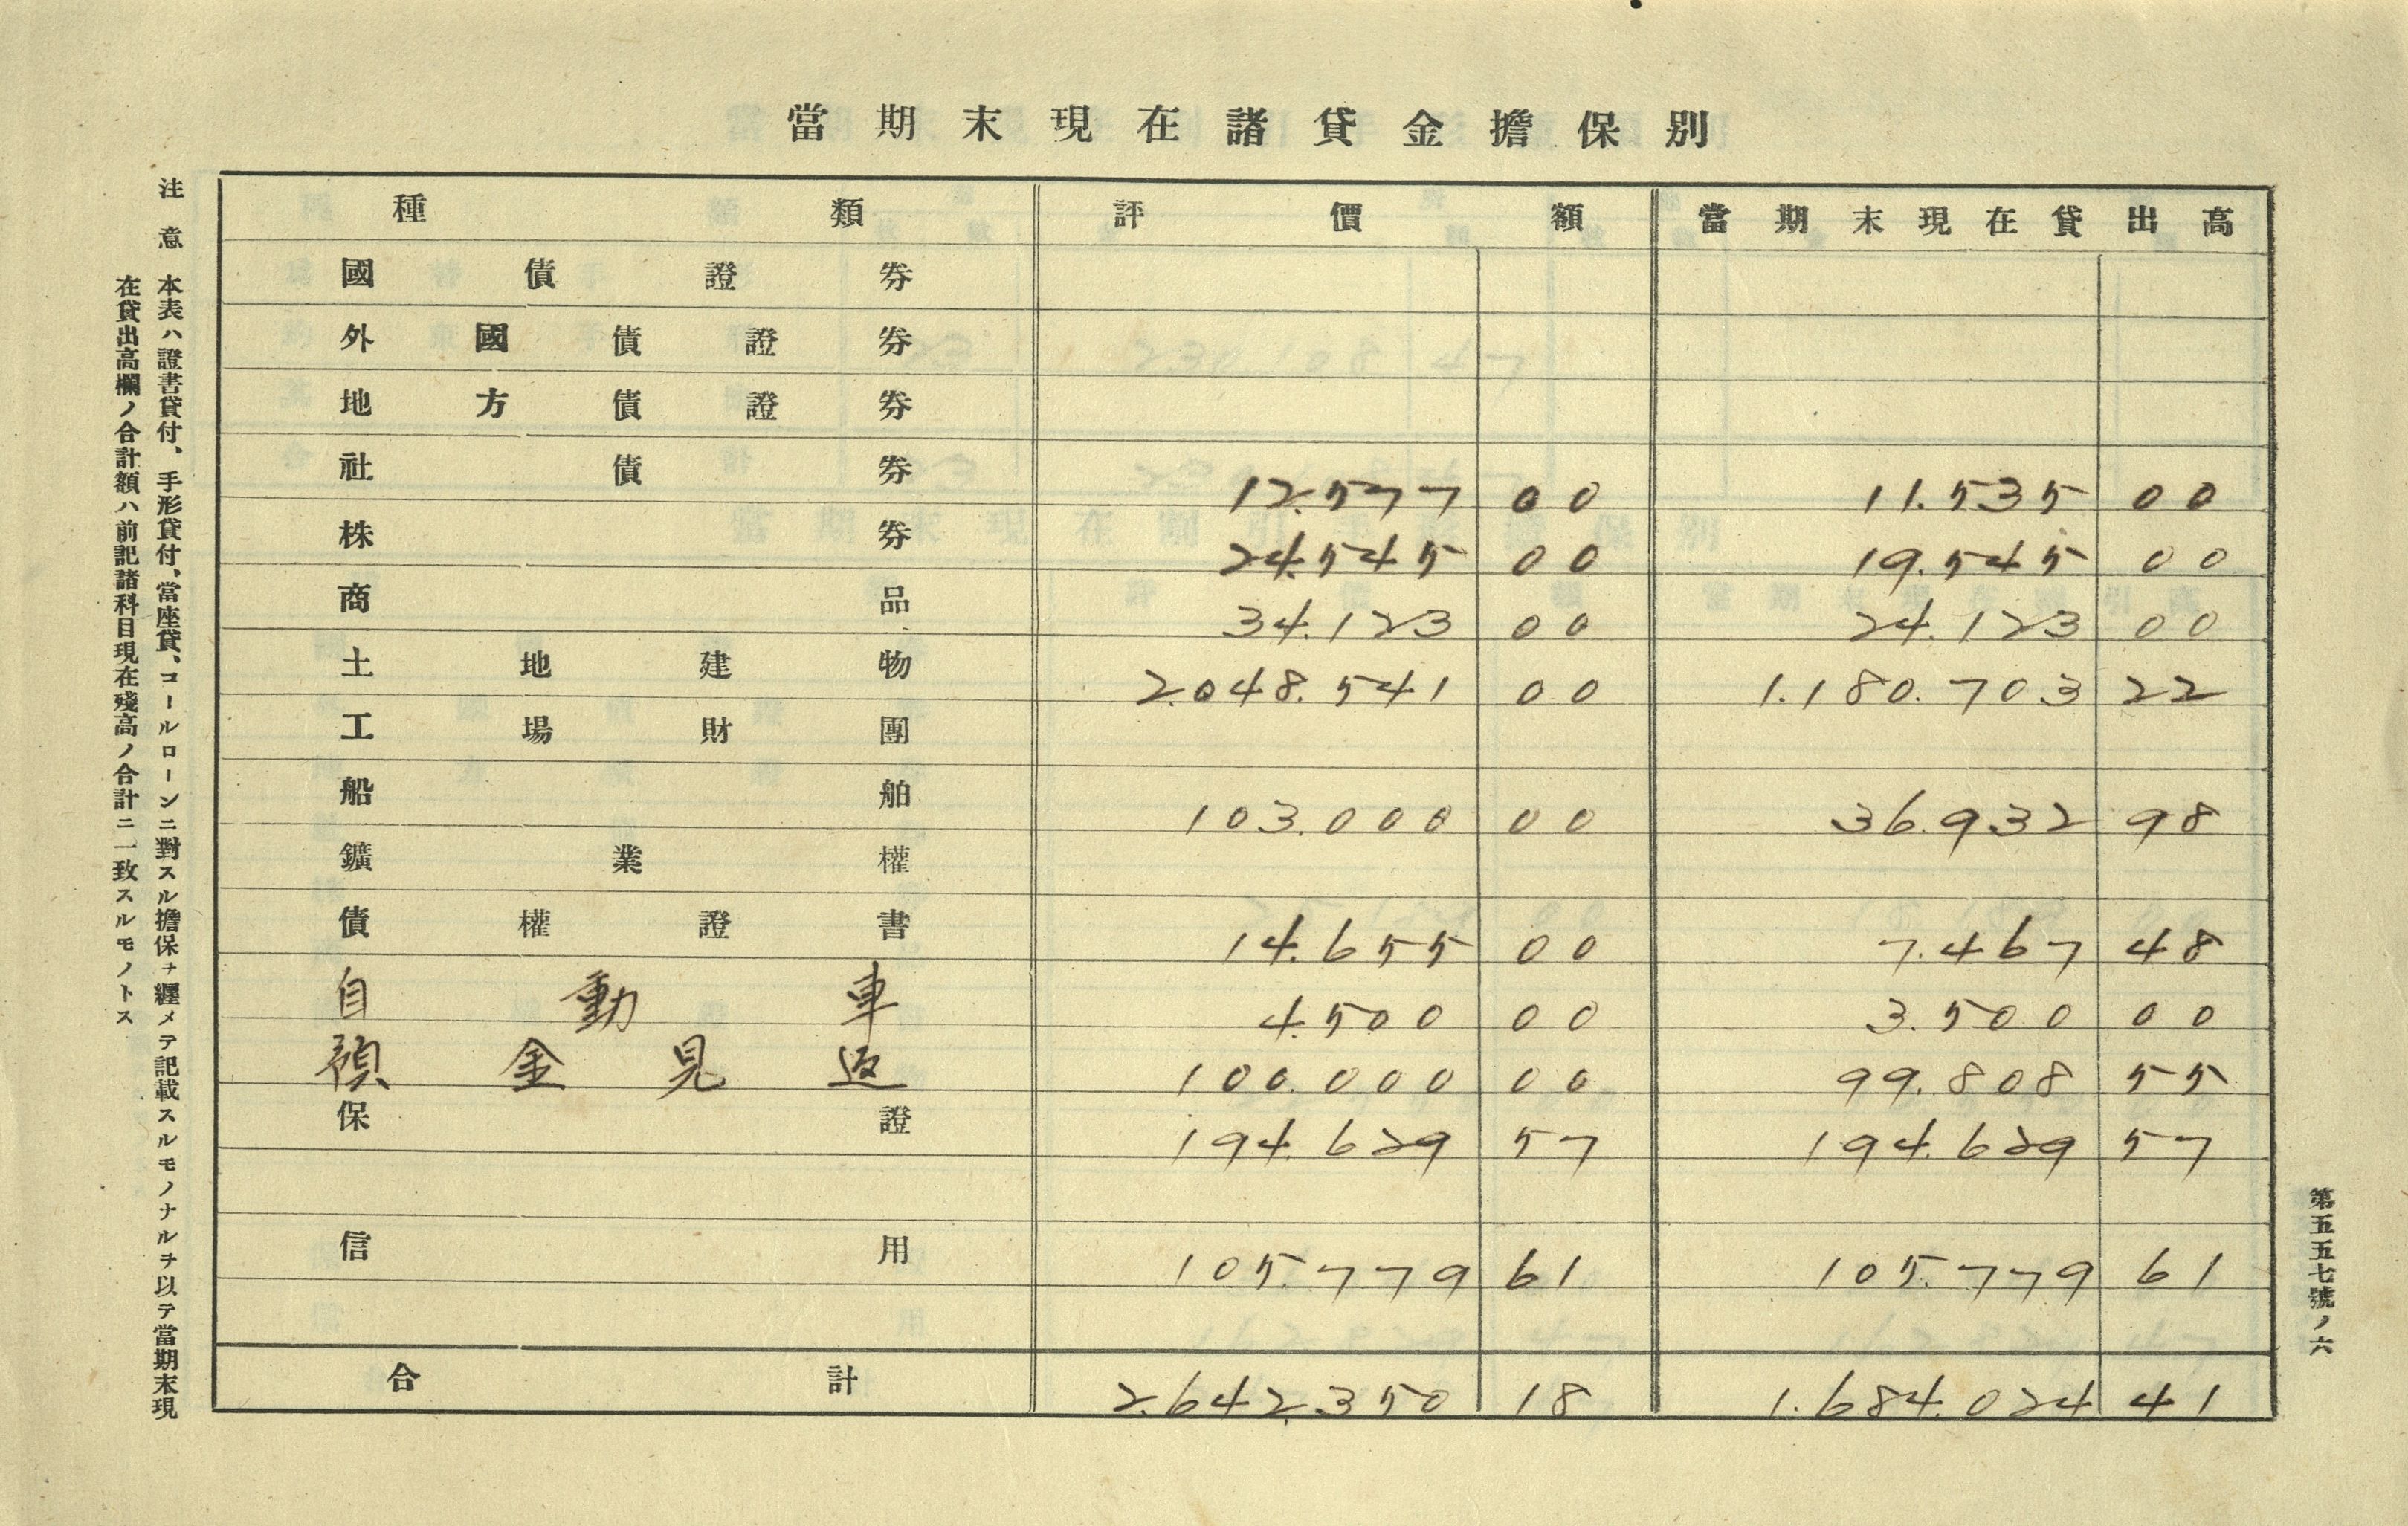 當期末現在諸貸金擔保別
種類 評價額 當期末現在貸出高
國債證券
外國債證券
地方債證券
社債券 12.577 00 11.535 00
株券 24.545 00 19.545 00
商品 34.123 00 24.123 00
土地建物 2.048.541 00 1.180.703 22
工場財團
船舶 103.000 00 36.932 98
鑛業權
債權證書 14.655 00 7.467 48
自動車 4.500 00 3.500 00
預金見返 100.000 00 99.808 55
保證 194.629 57 194.629 57
信用 105.779 61 105.779 61
合計 2.642.350 18 1.684.024 41
注意 本表ハ證書貸付、手形貸付、當座貸、コールローンニ對スル擔保ヲ纒メテ記載スルモノナルヲ以テ當期末現
在貸出高欄ノ合計額ハ前記諸科目現在殘高ノ合計ニ一致スルモノトス
第五五七號ノ六